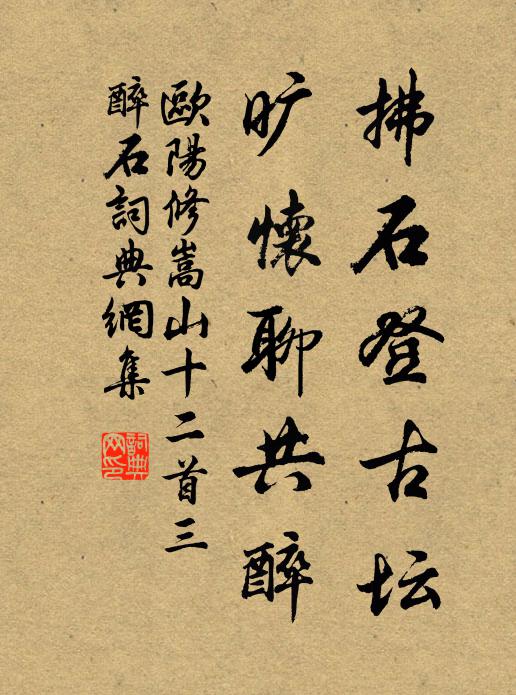 拂石登古坛
旷懷聊共醉
歐陽修嵩山十二首三
醉石詞典網集
詞典网印